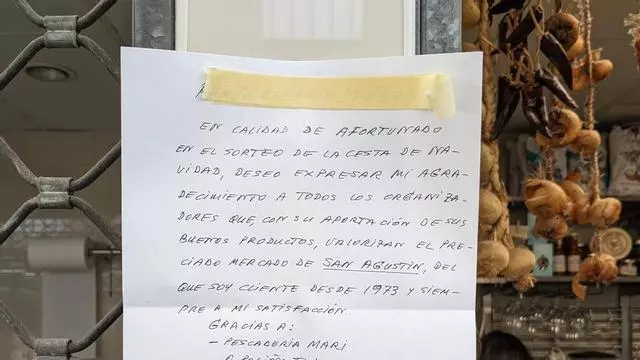 EN CALIDAD DE AFORTUNADO
EN EL SORTEO DE LA CESTA DE NA-
VIDAD, DESEO EXPRESAR MI AGRA-
DECIMIENTO A TODOS LOS ORGANIZA-
DORES QUE CON SU APORTACIÓN DE SUS
BUENOS PRODUCTOS, VALORIZAN EL PRE-
CIADO MERCADO DE SAN AGUSTIN, DEL
QUE SOY CLIENTE DESDE 1973 Y SIEM-
PRE A MI SATISFACCIÓN.
GRACIAS A:
- PESCADERIA MARI